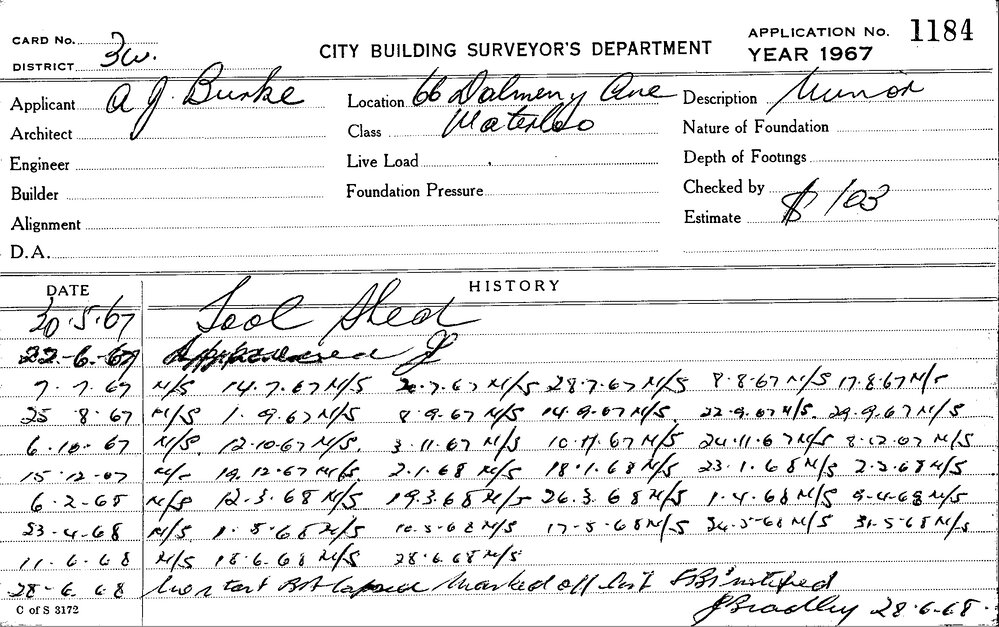 CARD No.
DISTRICT 3w.
CITY BUILDING SURVEYOR'S DEPARTMENT
APPLICATION No. 1184
YEAR 1967
Applicant A J. Burke
Location 66 Dalmeny Ave
Waterloo
Description Minor
Architect
Class
Nature of Foundation
Engineer
Live Load
Depth of Footings
Builder
Foundation Pressure
Checked by
Alignment
Estimate $ 103
D.A.
DATE HISTORY
30.5.67 Tool Shed
22-6-67 Approved
7.7.67 N/S 14.7.67 N/S 28.7.67 N/S 8.8.67 N/S 17.8.67 N/S
25 8.67 N/S 1.9.67 N/S 8.9.67 N/S 14.9.67 N/S. 22.9.67 N/S. 29.9.67 N/S
6.10.67 N/S. 12.10.67 N/S. 3.11.67 N/S 10.11.67 N/S 24.11.67 N/S 8.12.67 N/S
15.12.67 N/S 19.12.67 N/S. 2.1.68 N/S 18.1.68 N/S 23.1.68 N/S 2.2.68 N/S
6.2.68 N/S 12.3.68 N/S 19.3.68 N/S 26.3.68 N/S 1.4.68 N/S 9-4-68 N/S
23-4-68 N/S 1.5.68 N/S 10-5-68 N/S 17-5-68 N/S 24-5-68 N/S 31-5-68 N/S
11.6.68 N/S 18.6.68 N/S 28.6.68 N/S
28-6.68 start BA lapsed marked off list
J Bradley 28-6-68.
C of S 3172